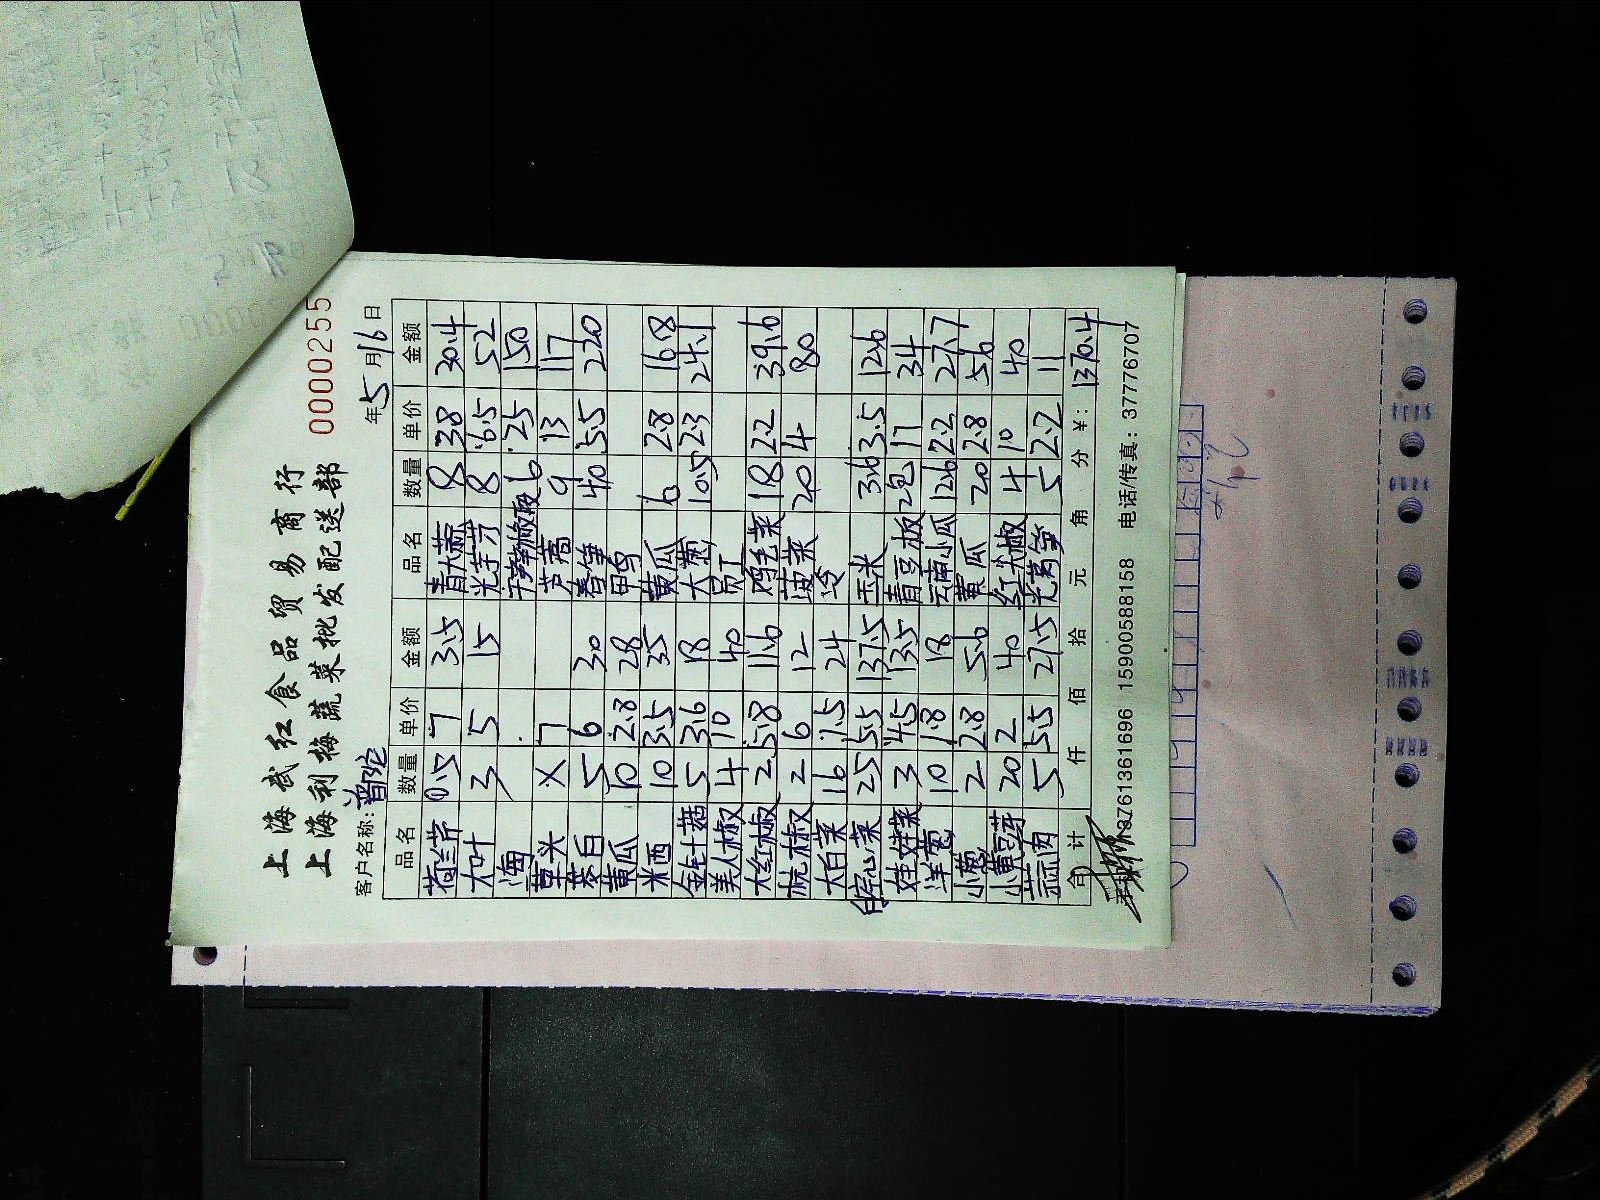 0000255
上海武红食品贸易商行
上海利梅蔬菜批发配送部
客户名称: 普陀 年5月16日
品名 数量 单价 金额 品名 数量 单价 金额
荷兰芹 0.5 7 3.5 青大蒜 8 3.8 30.4
大叶 3 5 15 光芋艿 8 6.5 52
海 6 25 150
草头 X 7 芦蒿 9 13 117
茭白 5 6 30 春笋 40 5.5 220
黄瓜 10 2.8 28
米西 10 3.5 35 黄瓜 6 2.8 16.8
金针菇 5 3.6 18 大 10.5 2.3 24.1
美人椒 4 10 40
大红椒 2 5.8 11.6 鸡毛菜 18 2.2 39.6
杭椒 2 6 12 菠菜 20 4 80
大白菜 16 1.5 24 冷
空心菜 25 5.5 137.5 玉米 3.6 3.5 12.6
娃娃菜 3 4.5 13.5 青豆板 2包 17 34
洋葱 10 1.8 18 云南小瓜 12.6 2.2 27.7
小葱 2 2.8 5.6 黄瓜 20 2.8 56
小黄豆芽 20 2 40 红尖椒 4 10 40
蒜肉 5 5.5 27.5 光莴笋 5 2.2 11
合计 仟 佰 拾 元 角 分 ¥: 1370.4
13761361696 15900588158 电话/传真: 37776707